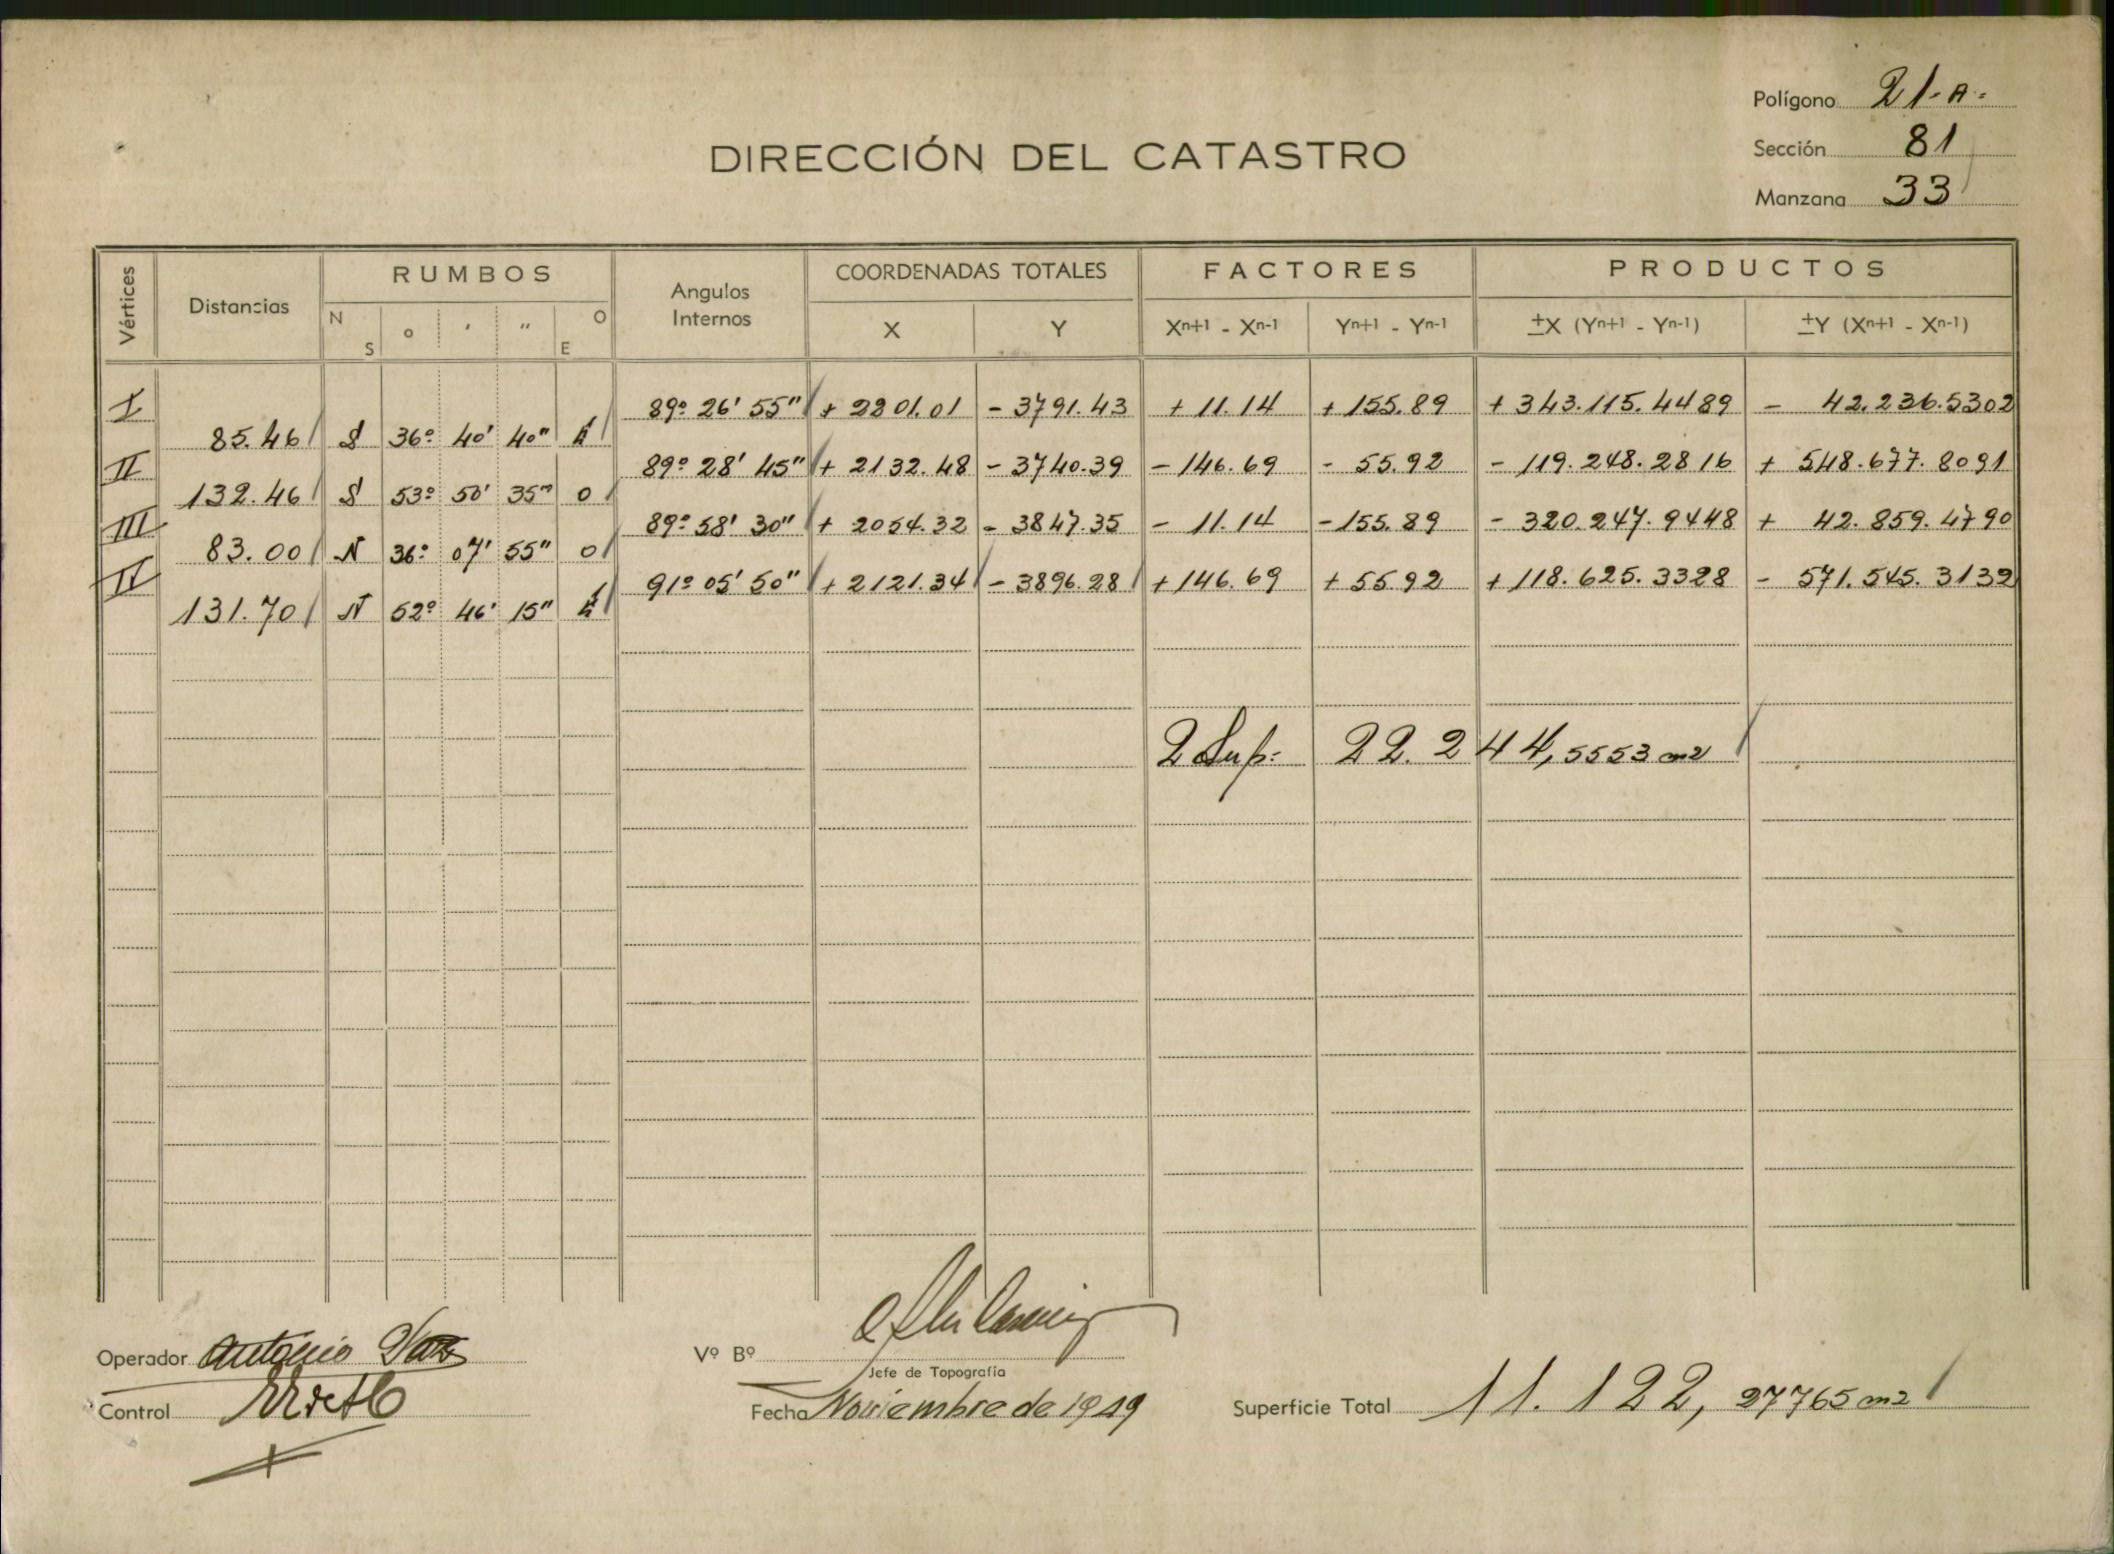 Polígono 21-A-
Sección 81
Manzana 33
DIRECCIÓN DEL CATASTRO
Vértices Distancias RUMBOS Angulos Internos COORDENADAS TOTALES FACTORES PRODUCTOS
N S ° ' " O E X Y Xn+1 - Xn-1 Yn+1 - Yn-1 ±X (Yn+1 - Yn-1) ±Y (Xn+1 - Xn-1)
I 89º 26' 55" + 2201.01 - 3791.43 + 11.14 + 155.89 + 343.115.4489 - 42.236.5302
85.46 S 36º 40' 40" E
II 89º 28' 45" + 2132.48 - 3740.39 - 146.69 - 55.92 - 119.248.2816 + 548.677.8091
132.46 S 53º 50' 35" O
III 89º 58' 30" + 2054.32 - 3847.35 - 11.14 - 155.89 - 320.247.9448 + 42.859.4790
83.00 N 36º 07' 55" O
IV 91º 05' 50" + 2121.34 - 3896.28 + 146.69 + 55.92 + 118.625.3328 - 571.545.3132
131.70 N 52º 46' 15" E
2 Sup: 22.244,5553 m2
Operador Antonio
Control
Vº Bº
Jefe de Topografía
Fecha Noviembre de 1949
Superficie Total 11.122,27765 m2